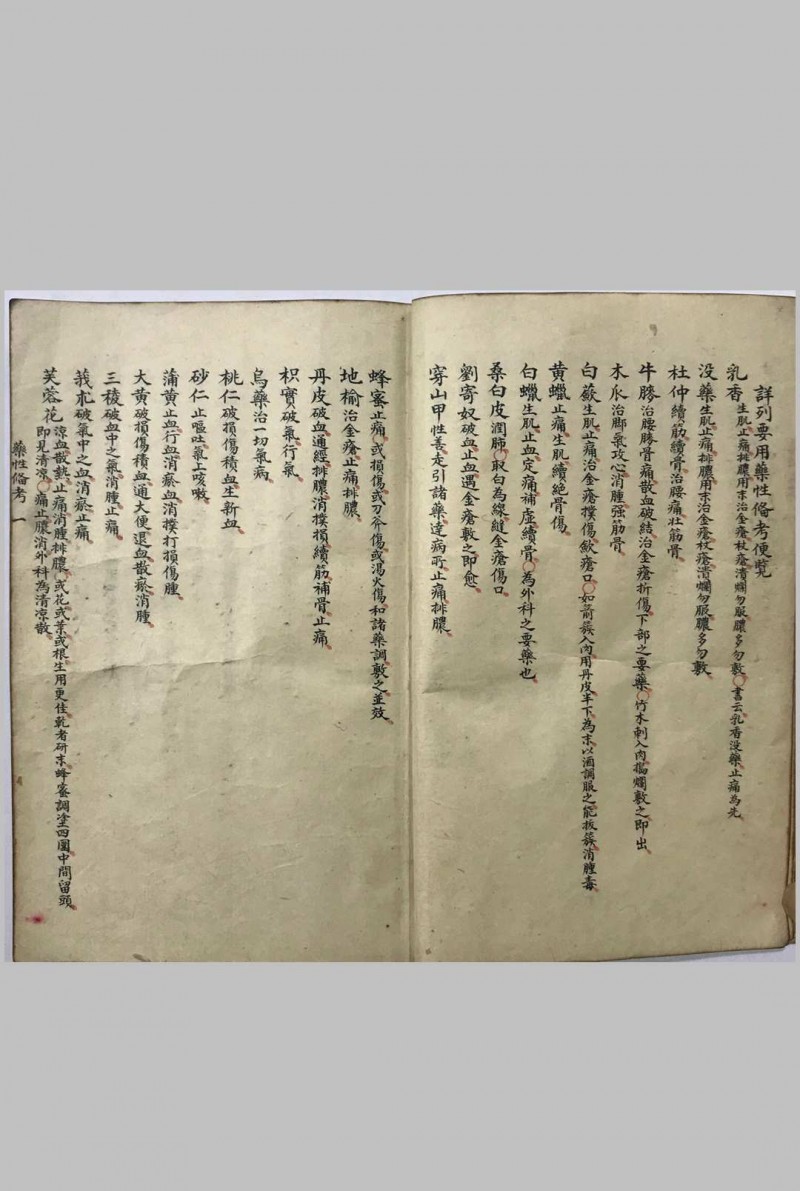 詳列要用藥性俻考便覽
乳香生肌止痛排膿用末治金瘡杖瘡潰爛勿服膿多勿敷〇書云乳香没藥止痛為先
没藥生肌止痛排膿用末治金瘡杖瘡潰爛勿服膿多勿敷
杜仲續筋續骨治腰痛壯筋骨
牛膝治腰膝骨痛散血破結治金瘡折傷下部之要藥〇竹木刺入肉搗爛敷之即出
木瓜治脚氣攻心消腫强筋骨
白蘞生肌止痛治金瘡撲傷斂瘡口〇如箭簇入肉用丹皮半下為末以酒調服之能拔簇消腫毒
黄蠟止痛生肌續絶骨傷
白蠟生肌止血定痛補虛續骨〇為外科之要藥也
桑白皮潤肺〇取白為線縫金瘡傷口
劉寄奴破血止血遇金瘡敷之即愈
穿山甲性善走引諸藥達病所止痛排膿
蜂蜜止痛〇或損傷或刀斧傷或湯火傷和諸藥調敷之並效
地榆治金瘡止痛排膿
丹皮破血通經排膿消撲損續筋補骨止痛
枳實破氣行氣
烏藥治一切氣病
桃仁破損傷積血生新血
砂仁止嘔吐氣上咳嗽
蒲黄止血行血消瘀血消撲打損傷腫
大黄破損傷積血通大便退血散瘀消腫
三稜破血中之氣消腫止痛
莪朮破氣中之血消瘀止痛
芙蓉花涼血散熱止痛消腫排膿或花或葉或根生用更佳乾者研末蜂蜜調塗四圍中間留頭
即見清凉〇痛止膿消外科為清凉散
藥性俻考 一